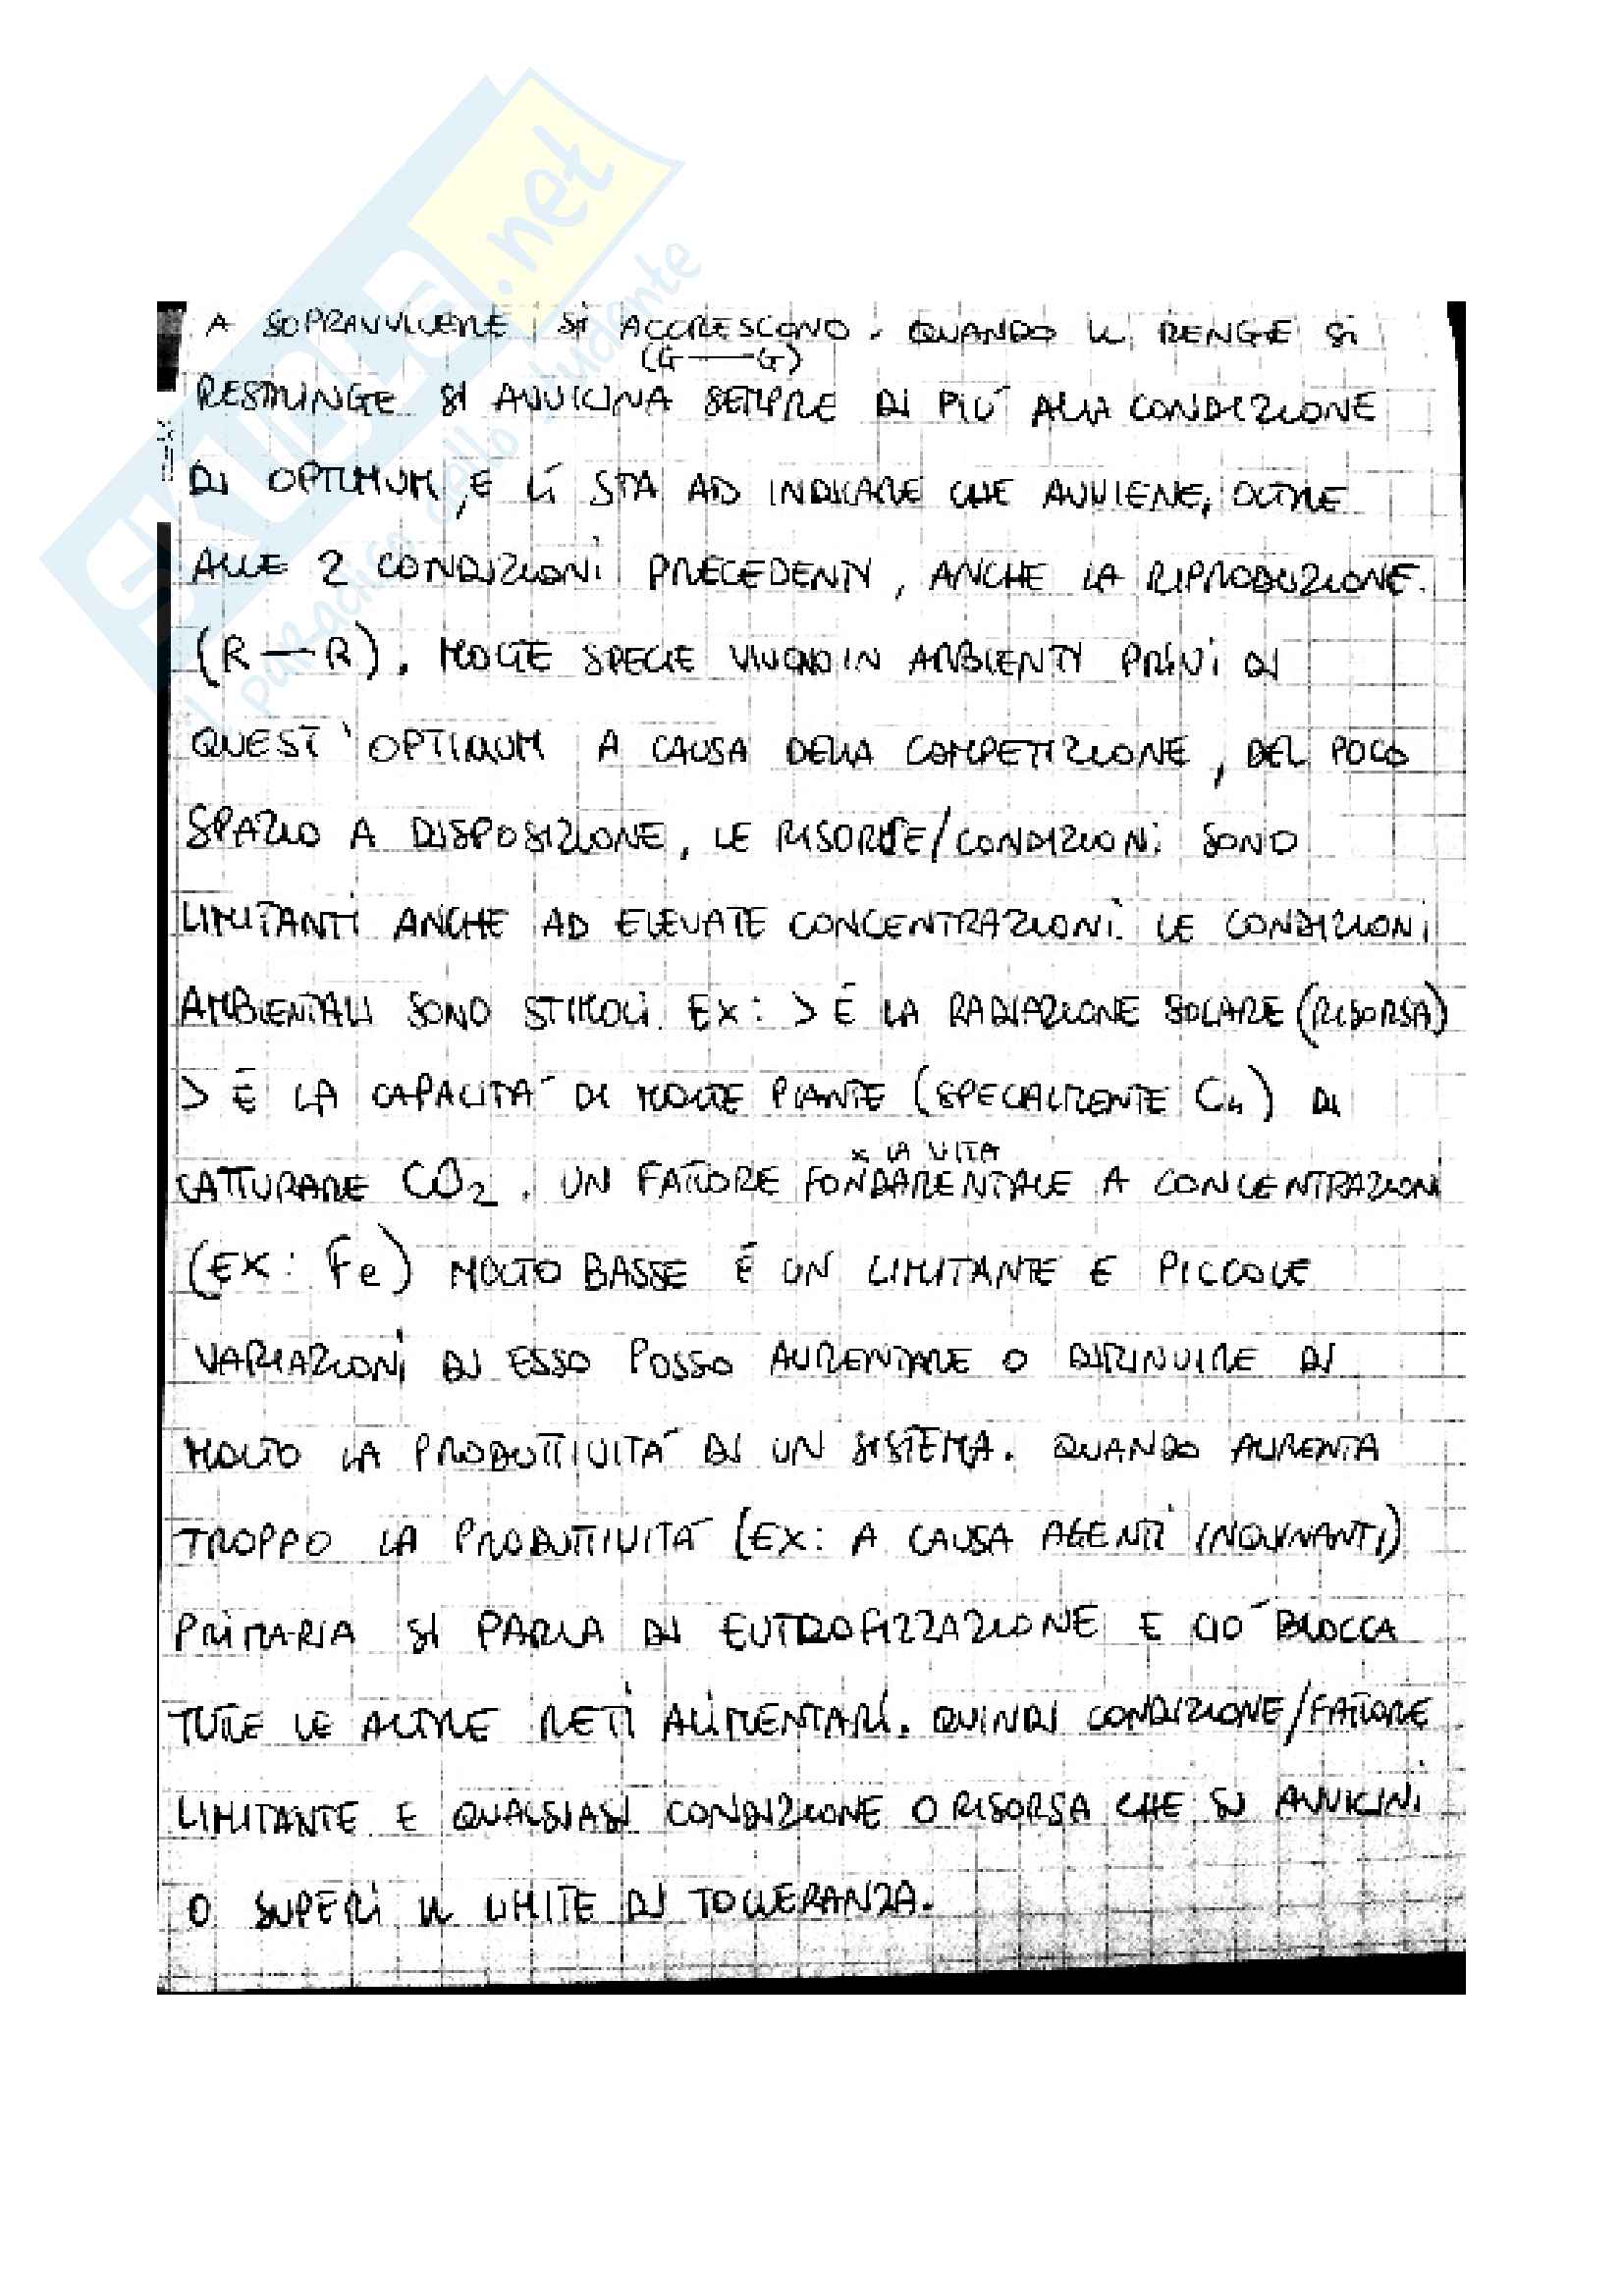 SKUOLA.net
il paradiso dello studente
A SOPRAVVIVERE SI ACCRESCONO. QUANDO IL RENGE SI
(G—G)
RESTRINGE SI AVVICINA SEMPRE DI PIÚ ALLA CONDIZIONE
DI OPTIMUM, E LÍ STA AD INDICARE CHE AVVIENE, OLTRE
ALLE 2 CONDIZIONI PRECEDENTI, ANCHE LA RIPRODUZIONE.
(R—R). MOLTE SPECIE VIVONO IN AMBIENTI PRIVI DI
QUEST'OPTIMUM A CAUSA DELLA COMPETIZIONE, DEL POCO
SPAZIO A DISPOSIZIONE, LE RISORSE/CONDIZIONI SONO
LIMITANTI ANCHE AD ELEVATE CONCENTRAZIONI. LE CONDIZIONI
AMBIENTALI SONO STIMOLI. EX: > É LA RADIAZIONE SOLARE (RISORSA)
> É LA CAPACITÁ DI MOLTE PIANTE (SPECIALMENTE C4) DI
x LA VITA
CATTURARE CO2. UN FATTORE FONDAMENTALE A CONCENTRAZIONI
(EX: Fe) MOLTO BASSE É UN LIMITANTE E PICCOLE
VARIAZIONI DI ESSO POSSO AUMENTARE O DIMINUIRE DI
MOLTO LA PRODUTTIVITÁ DI UN SISTEMA. QUANDO AUMENTA
TROPPO LA PRODUTTIVITÁ (EX: A CAUSA AGENTI INQUINANTI)
PRIMARIA SI PARLA DI EUTROFIZZAZIONE E CIÓ BLOCCA
TUTTE LE ALTRE RETI ALIMENTARI. QUINDI CONDIZIONE/FATTORE
LIMITANTE E QUALSIASI CONDIZIONE O RISORSA CHE SI AVVICINI
O SUPERI IL LIMITE DI TOLLERANZA.